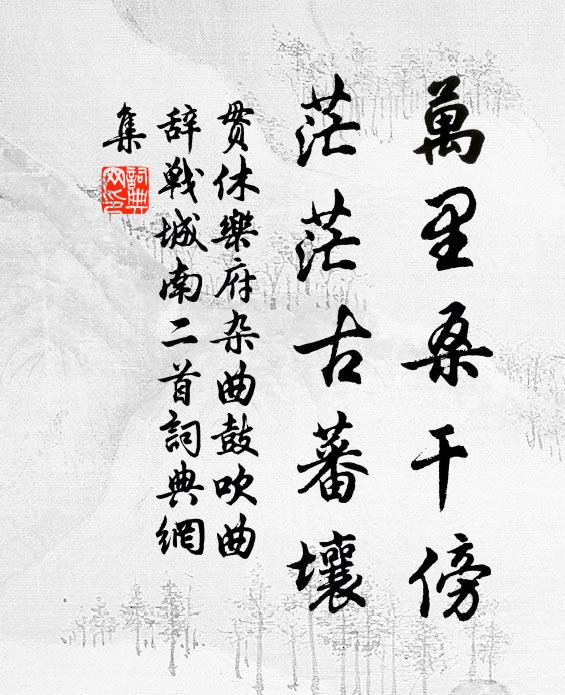 萬里桑干傍
茫茫古蕃壤
贯休樂府杂曲鼓吹曲
辞戦城南二首詞典網
集
詞典
网